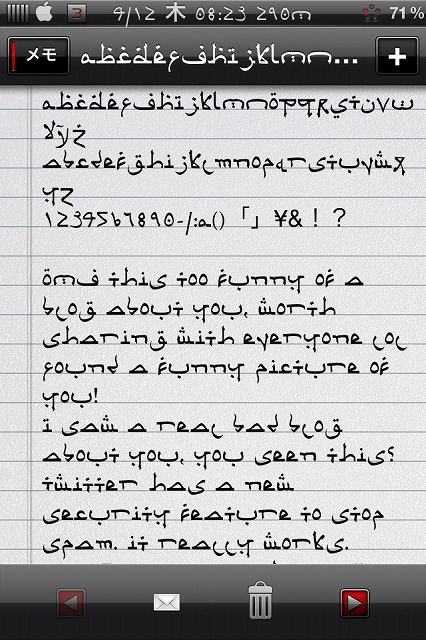 4/12 木 08:23 290m 71%
3
メモ
ABCDEFGHIJKLMN...
+
ABCDEFGHIJKLMNOPQRSTUVW
XYZ
abcdefghijklmnopqrstuvwx
yz
1234567890-/:a()「」¥&！？
OMG this too funny of a
blog about you, worth
sharing with everyone lol
found a funny picture of
you!
I saw a real bad blog
about you, you seen this?
twitter has a new
security feature to stop
spam. it really works.